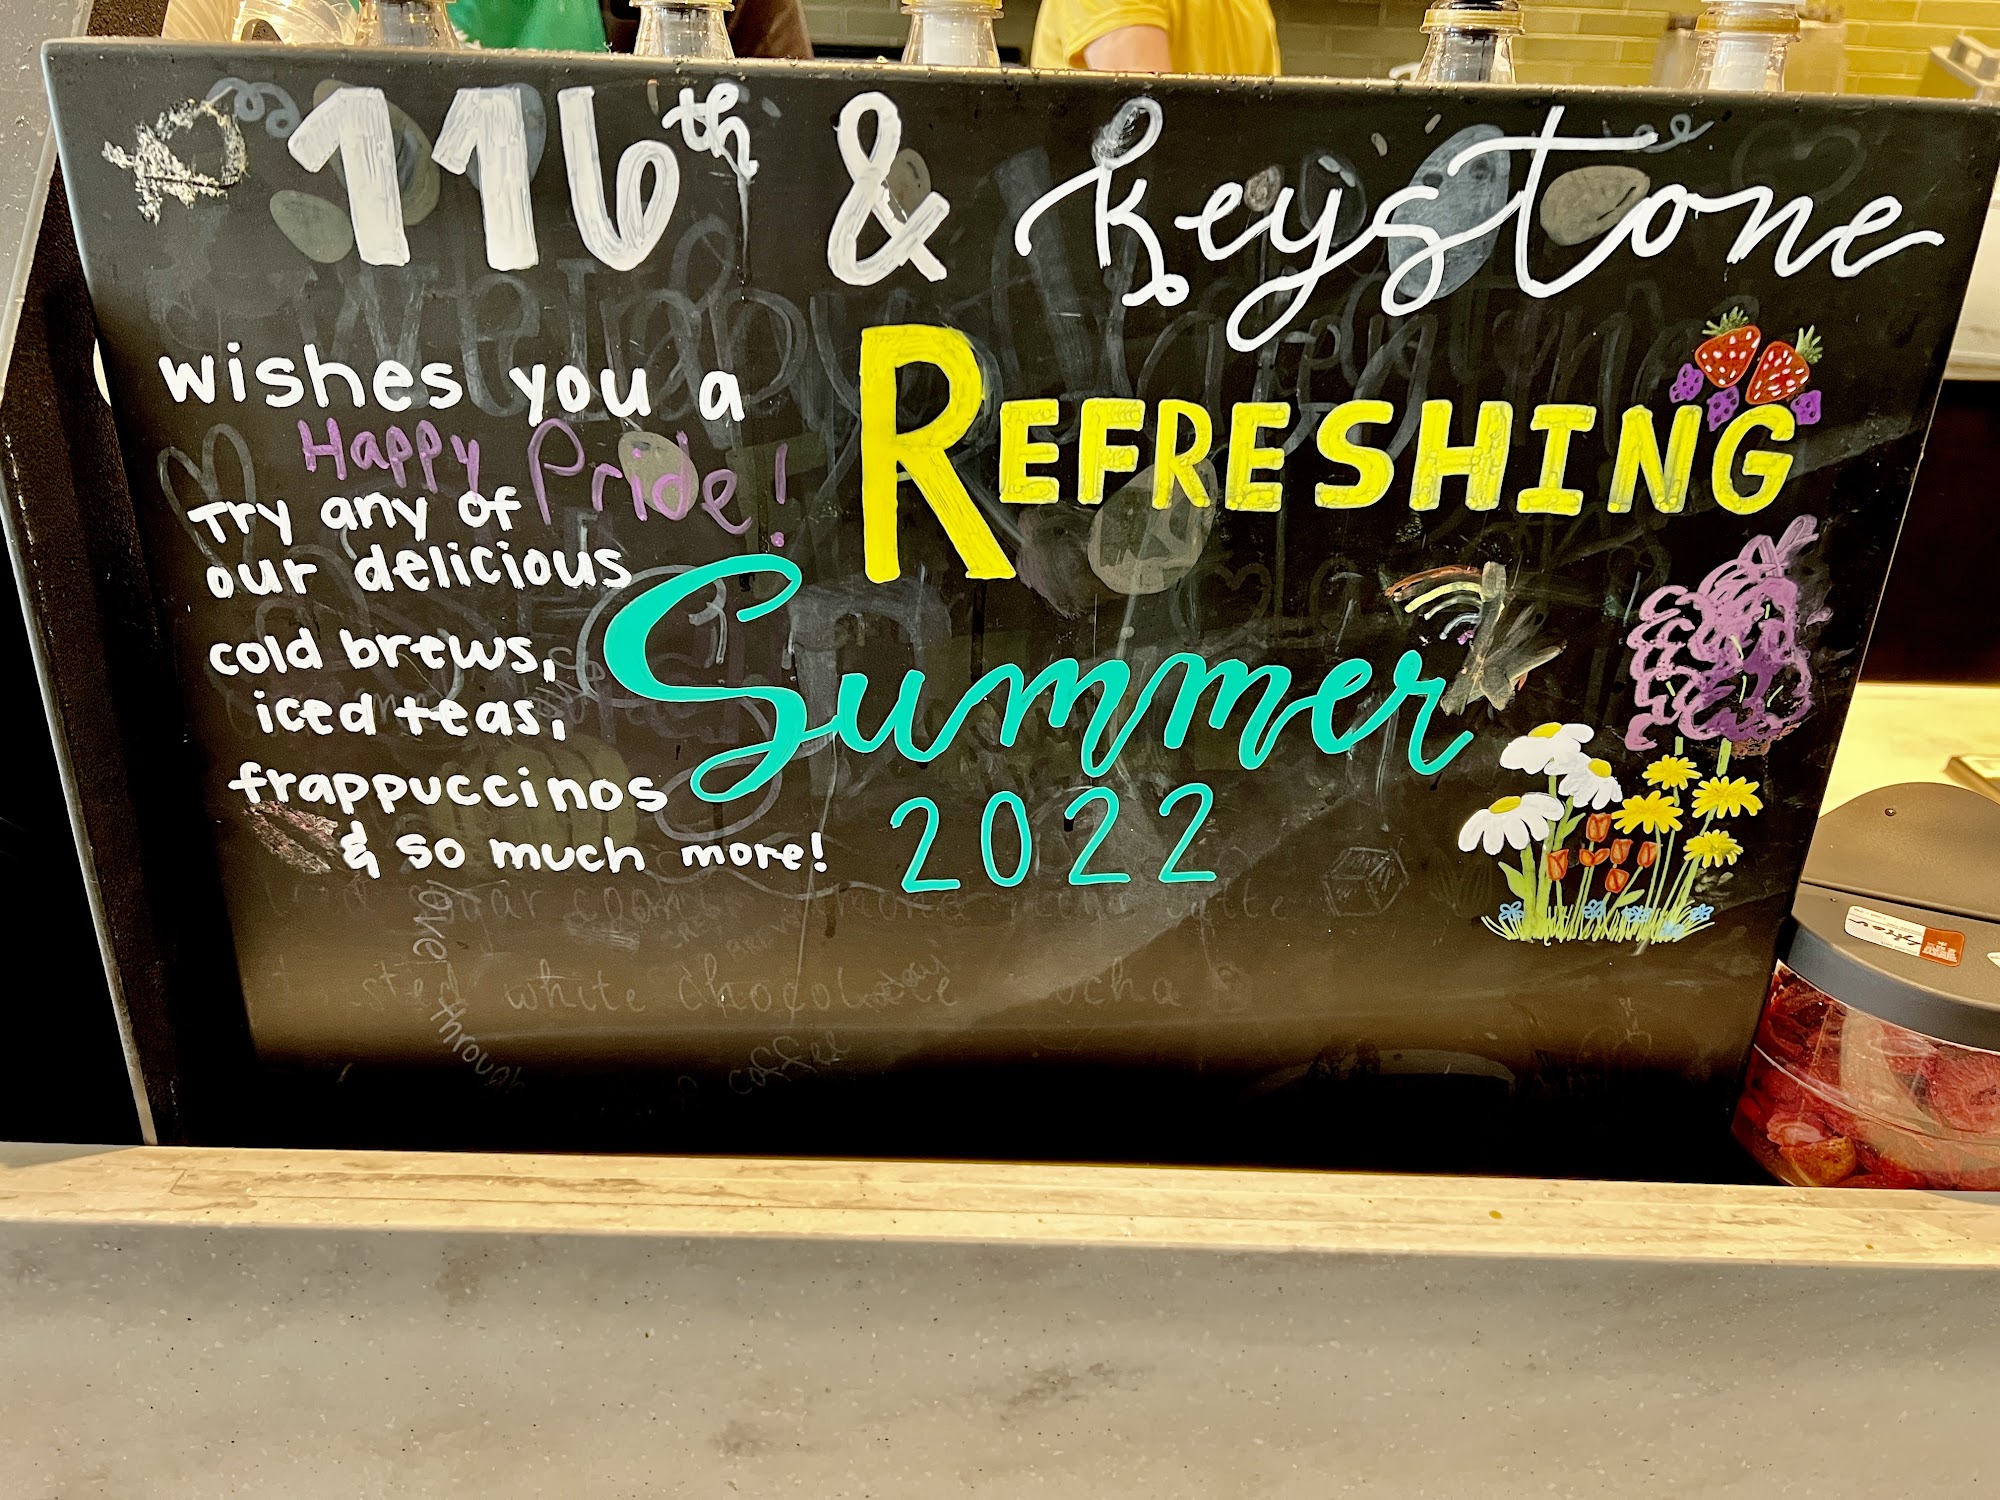 116th & Keystone
wishes you a
Happy Pride!
REFRESHING
Try any of
our delicious
Summer
cold brews,
iced teas,
frappuccinos
& so much more!
2022
white chocolate
love
through
coffee